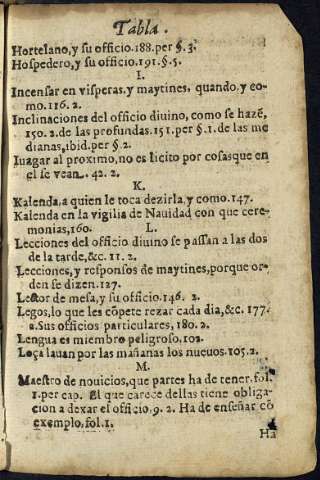 Tabla.
Hortelano, y su officio. 188. per §. 3.
Hospedero, y su officio. 191. §. 5.
I.
Incensar en visperas, y maytines, quando, y co-
mo. 116. 2.
Inclinaciones del officio diuino, como se hazẽ,
150. 2. de las profundas. 151. per §. 1. de las me
dianas, ibid. per §. 2.
Iuzgar al proximo, no es licito por cosas que en
el se vean. 42. 2.
K.
Kalenda, a quien le toca dezirla, y como. 147.
Kalenda en la vigilia de Nauidad con que cere-
monias, 160.
L.
Lecciones del officio diuino se passan a las dos
de la tarde, &c. 11. 2.
Lecciones, y responsos de maytines, porque or-
den se dizen. 127.
Lector de mesa, y su officio. 146. 2.
Legos, lo que les cõpete rezar cada dia, &c. 177.
2. Sus officios particulares, 180. 2.
Lengua es miembro peligroso. 102.
Loça lauan por las mañanas los nueuos. 105. 2.
M.
Maestro de nouicios, que partes ha de tener. fol.
1. per cap. El que carece dellas tiene obliga-
cion a dexar el officio. 9. 2. Ha de enseñar cõ
exemplo, fol. 1.
Ha